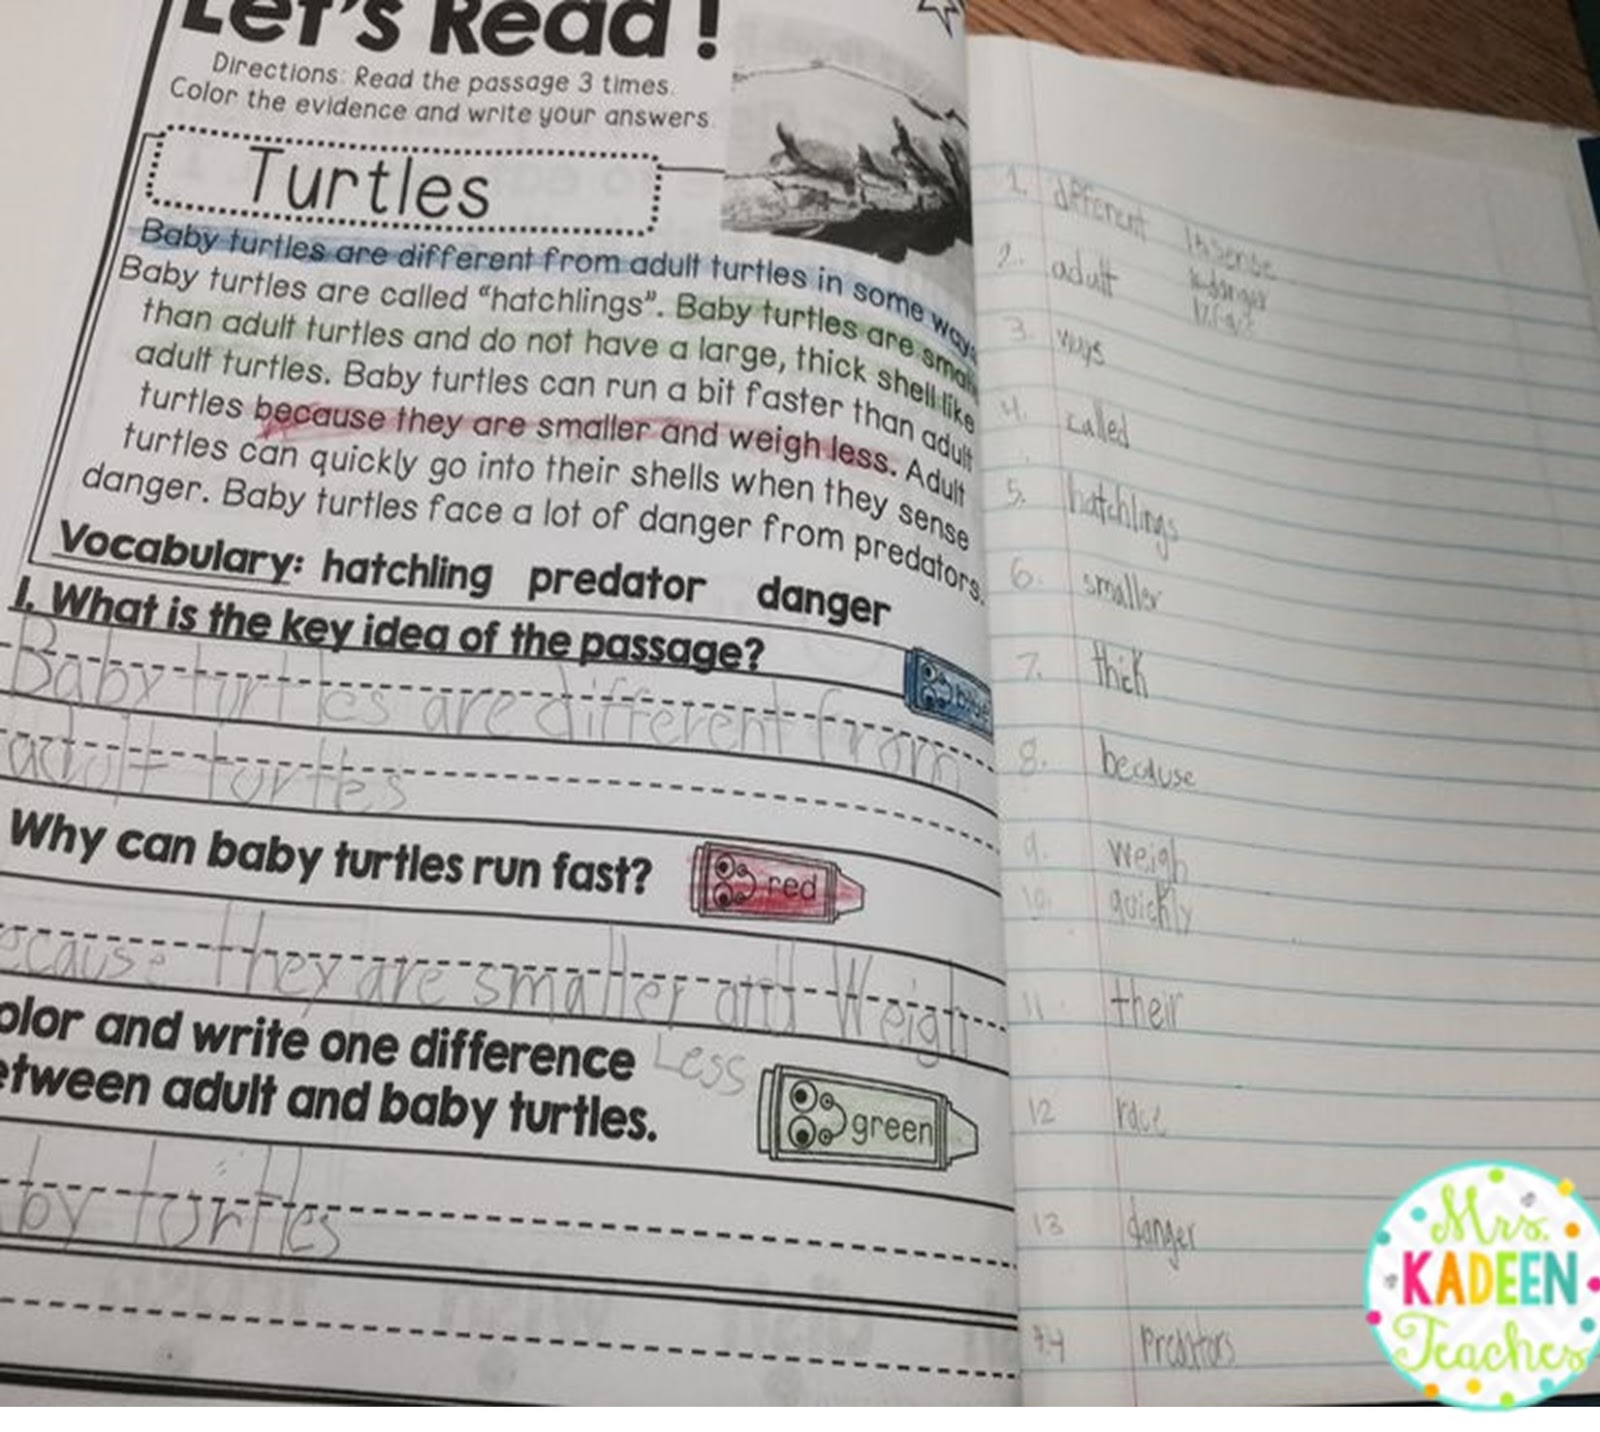 Let's Read!
Directions: Read the passage 3 times.
Color the evidence and write your answers.
Turtles
Baby turtles are different from adult turtles in some ways
Baby turtles are called “hatchlings”. Baby turtles are small
than adult turtles and do not have a large, thick shell like
adult turtles. Baby turtles can run a bit faster than adult
turtles because they are smaller and weigh less. Adult
turtles can quickly go into their shells when they sense
danger. Baby turtles face a lot of danger from predators.
Vocabulary: hatchling predator danger
1. What is the key idea of the passage?
blue
Baby turtles are different from
adult turtles
Why can baby turtles run fast?
red
ecause they are smaller and Weigh
Less
olor and write one difference
etween adult and baby turtles.
green
by turtles
1. different
2. adult
danger
3. ways
4. called
5. hatchlings
6. smaller
7. thick
8. because
9. weigh
10. quickly
11. their
12 race
13 danger
14 predators
Mrs.
KADEEN
Teaches